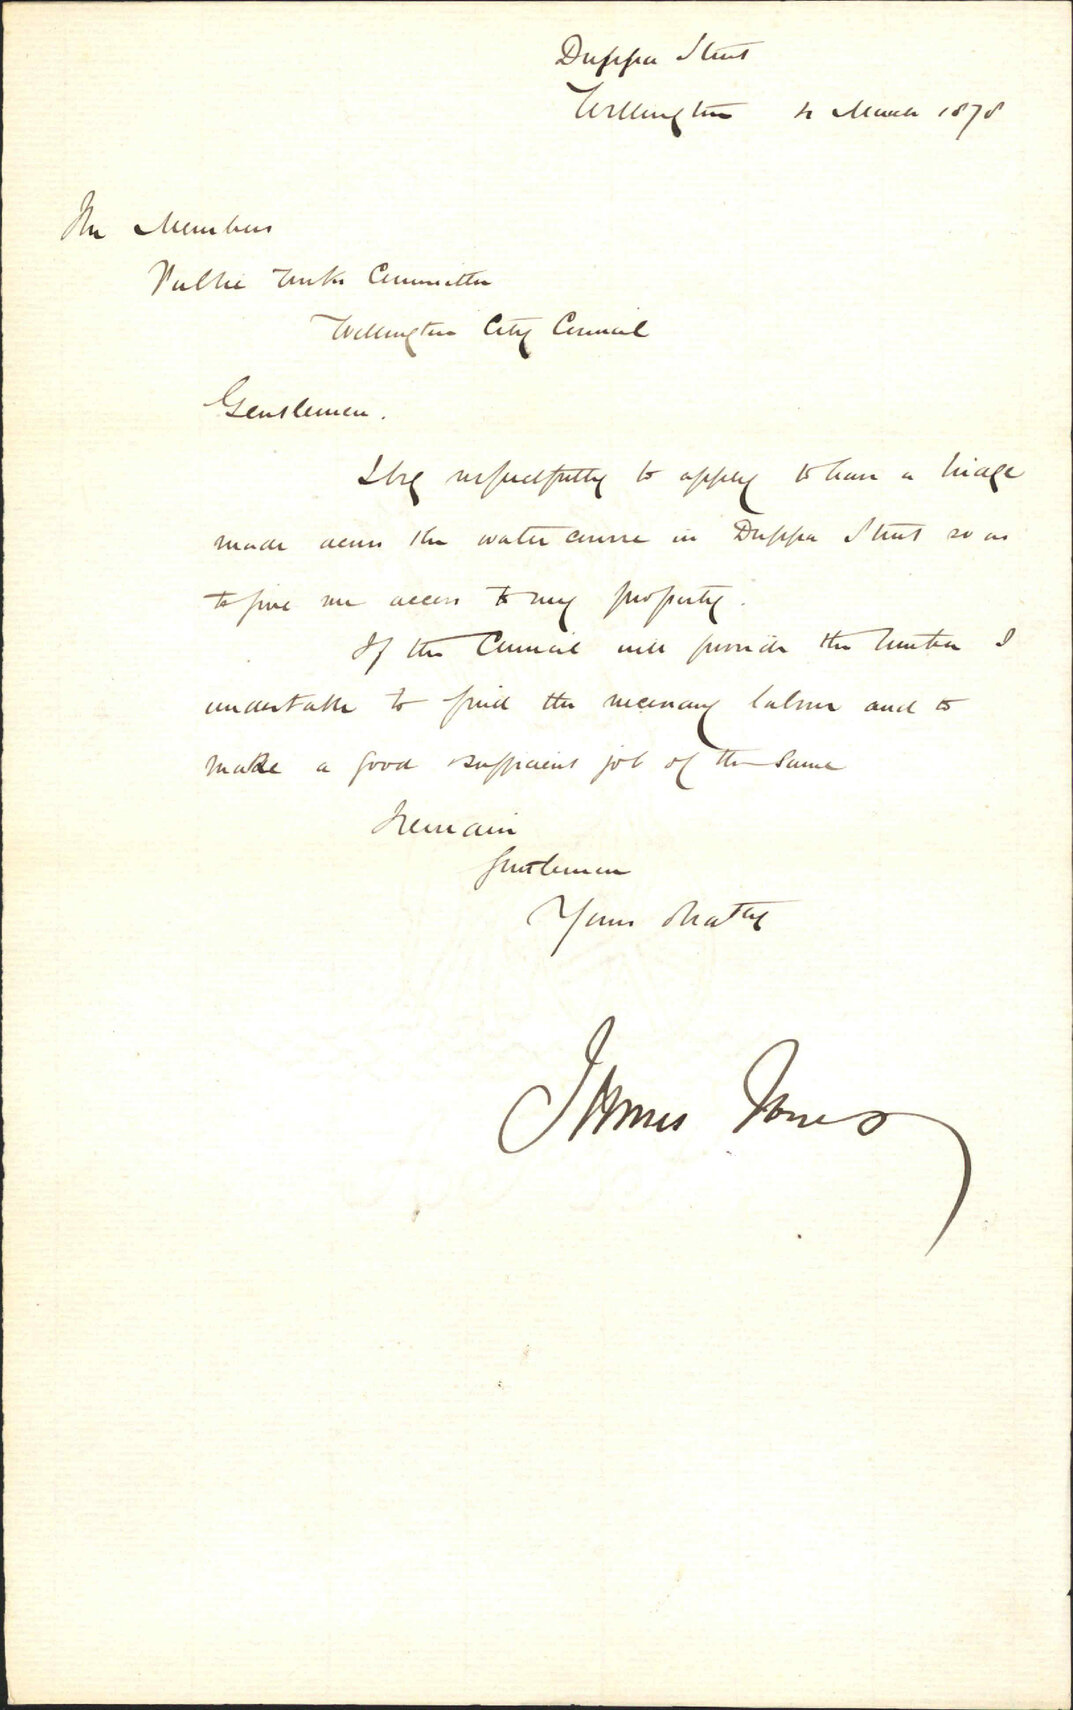 Duppa Street
Wellington 4 March 1878
The Members
Public Works Committee
Wellington City Council
Gentlemen.
I beg respectfully to apply to have a bridge
made across the water course in Duppa Street so as
to give me access to my property.
If the Council will provide the timber I
undertake to find the necessary labour and to
make a good sufficient job of the same
I remain
Gentlemen
Yours
James Jones